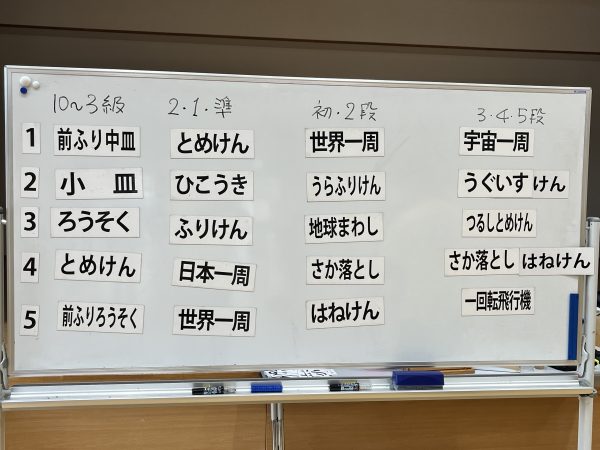 10〜3級 2・1・準 初・2段 3・4・5段
1 前ふり中皿 とめけん 世界一周 宇宙一周
2 小 皿 ひこうき うらふりけん うぐいす けん
3 ろうそく ふりけん 地球まわし つるしとめけん
4 とめけん 日本一周 さか落とし さか落とし はねけん
5 前ふりろうそく 世界一周 はねけん 一回転飛行機